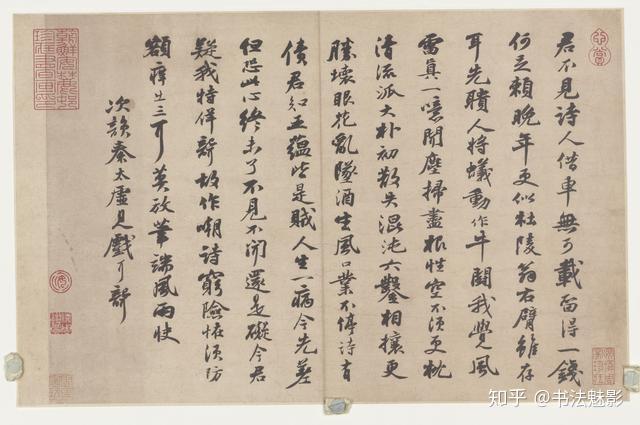 君不見詩人借車無可載留得一錢
何足賴晚年更似杜陵翁右臂雖存
耳先聵人將蟻動作牛鬪我覺風
雷真一噫聞塵掃盡根性空不須更枕
清流派大朴初散失混沌六鑿相攘更
勝壞眼花亂墜酒生風口業不停詩有
債君知五蘊皆是賊人生一病今先差
但恐此心終未了不見不聞還是礙今君
疑我特佯聾故作嘲詩窮險怪須防
額癢出三耳莫放筆端風雨快
次韻秦太虛見戲耳聾
知乎 @书法魅影